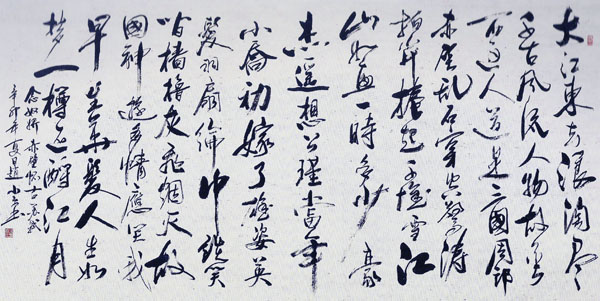 大江東去浪淘盡
千古風流人物故壘
西邊人道是三國周郎
赤壁亂石穿空驚濤
拍岸捲起千堆雪江
山如畫一時多少豪
杰遥想公瑾當年
小喬初嫁了雄姿英
發羽扇綸巾談笑
間檣櫓灰飛烟灭故
國神遊多情應笑我
早生華髮人生如
梦一樽還酹江月
念奴嬌赤壁懷古蘇軾
辛卯年夏